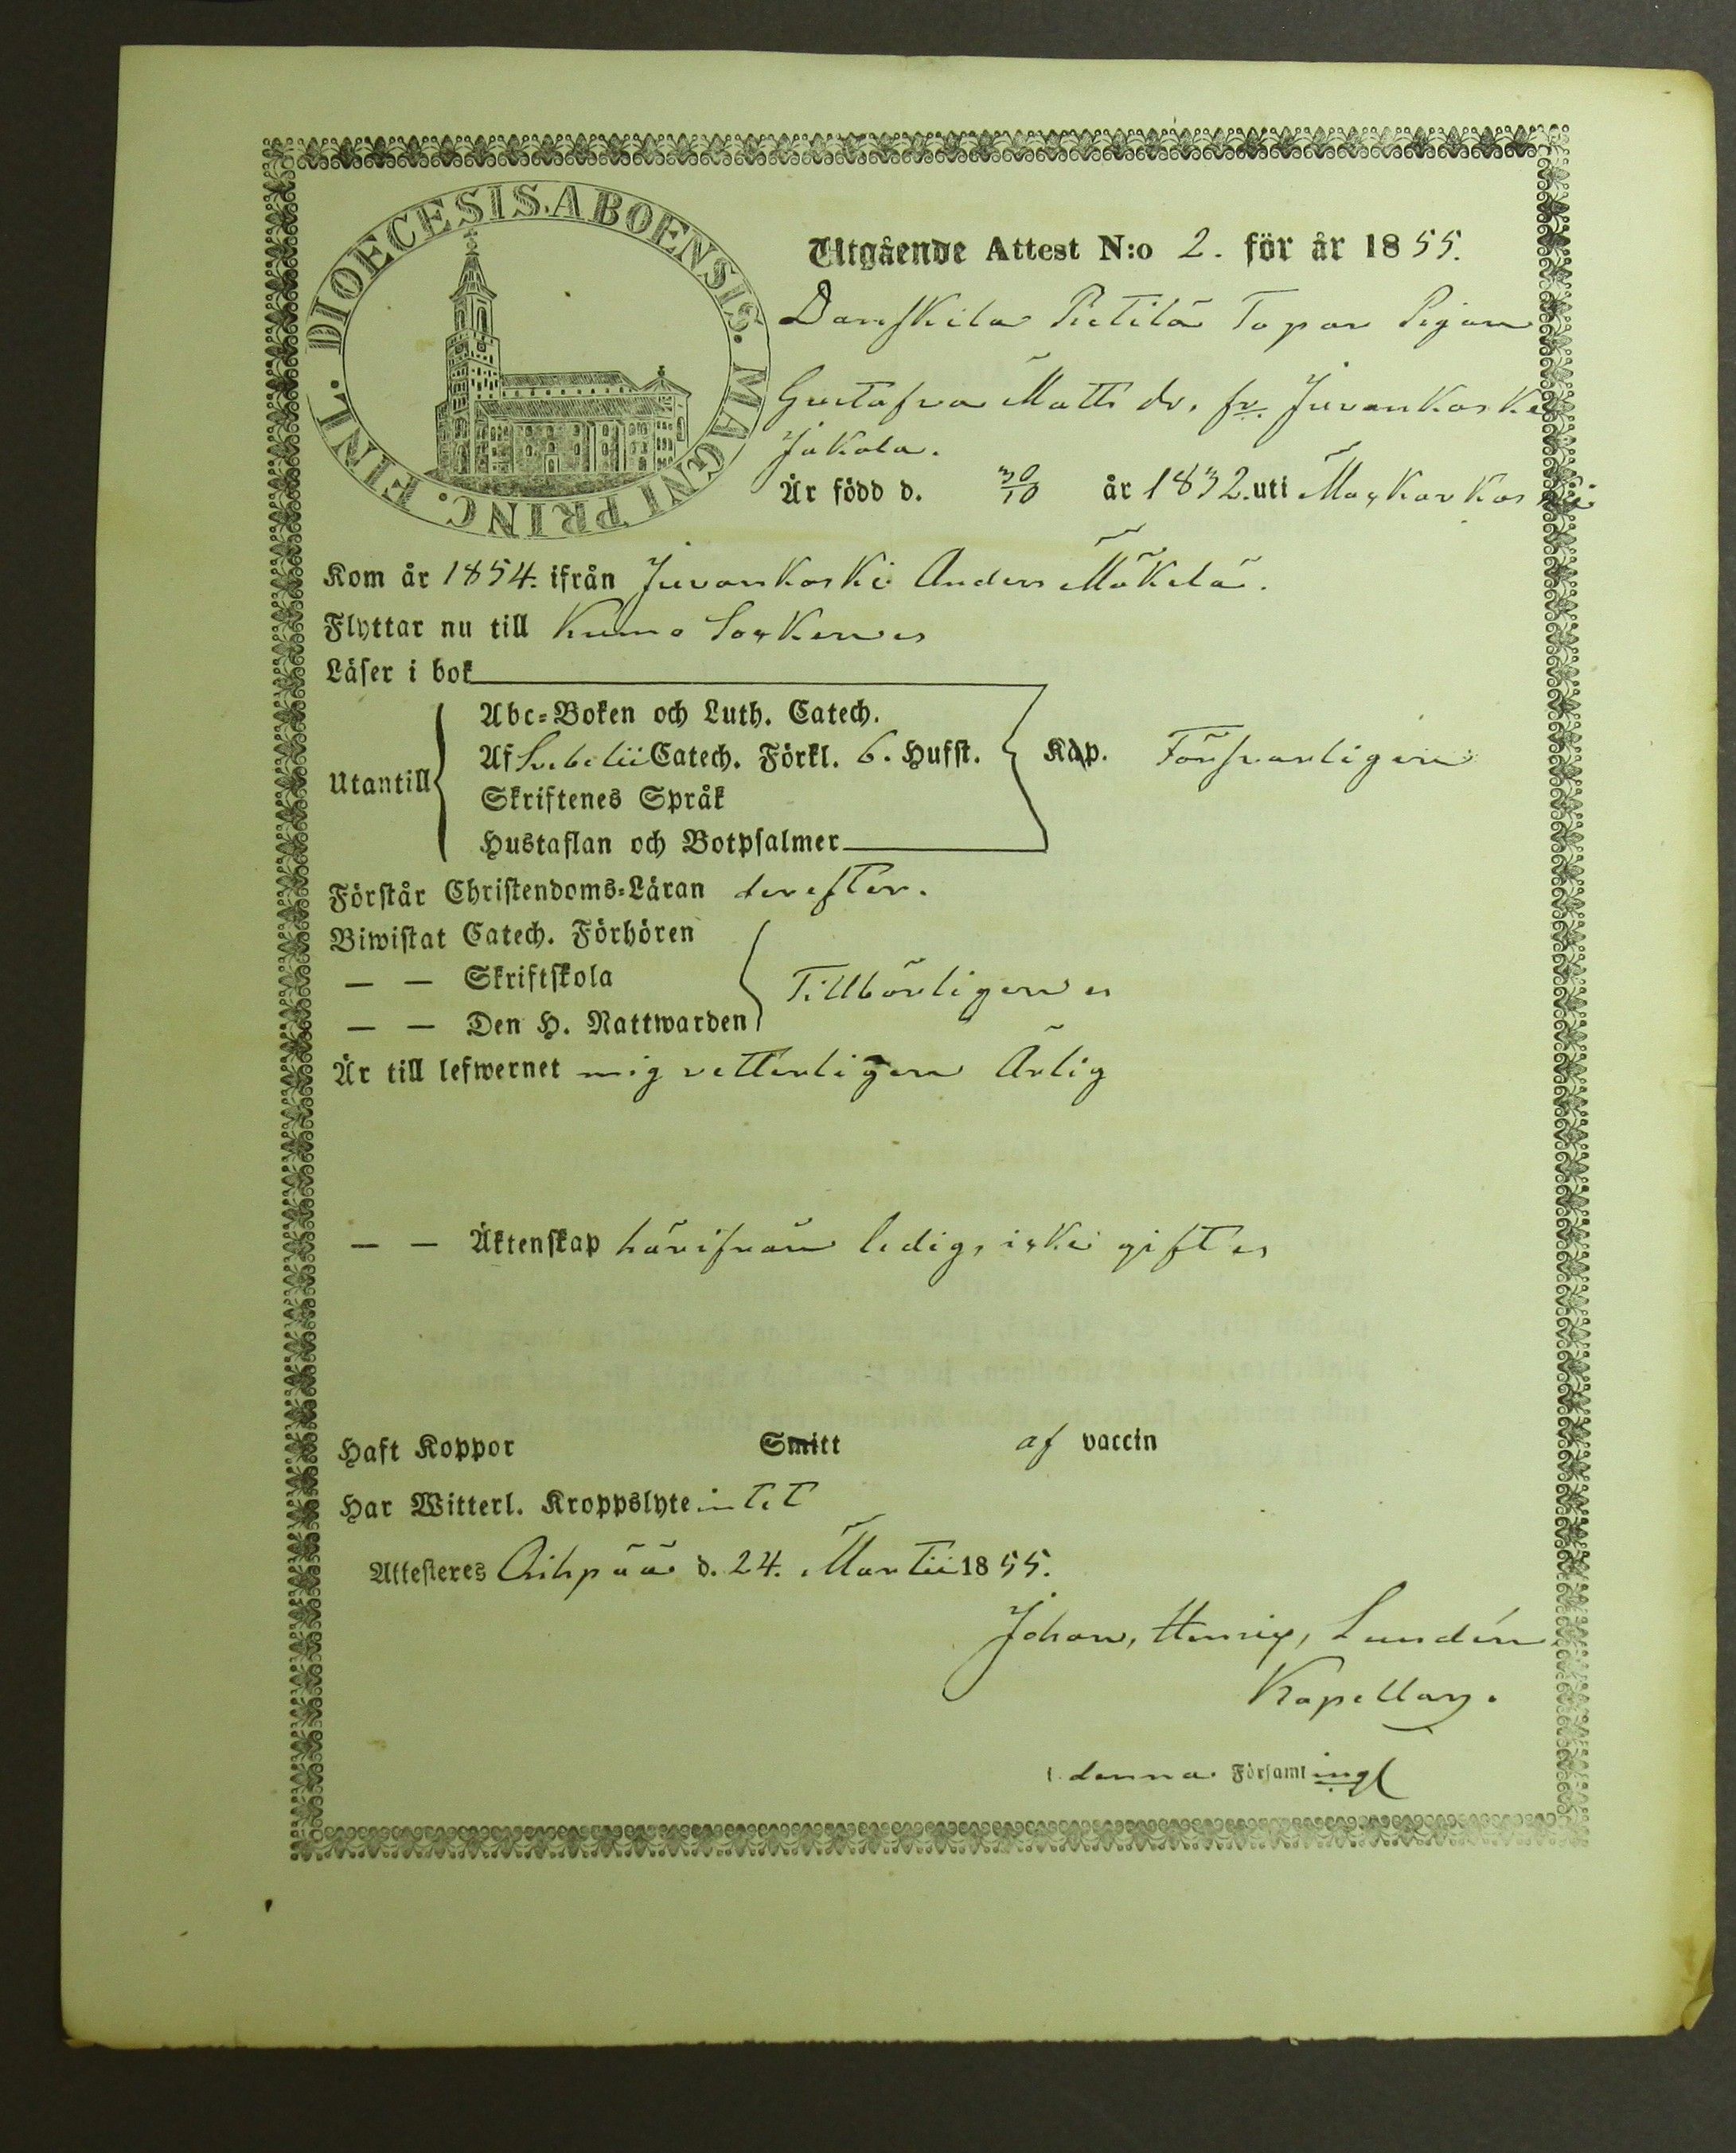 DIOECESIS. ABOENSIS. MAGNI PRINC. FINL.
Utgående Attest N:o 2. för år 1855.
Danskila Pietilä Topan Pigan
Gustafva Matts dr. fr. Juvankoski
Jakola.
Är född d. 30/10 år 1832. uti Mackarkoski
Kom år 1854. ifrån Juvankoski Anders Mäkelä.
Flyttar nu till Kumo Socken
Läser i bok
Abc-Boken och Luth. Catech.
Af Svebelii Catech. Förkl. 6. Hufst.
Utantill
Kap. Försvarligen
Skriftenes Språk
Hustaflan och Botpsalmer
Förstår Christendoms-Läran derefter.
Biwistat Catech. Förhören
— — Skriftskola
Tillbörligen
— — Den H. Nattwarden
Är till lefwernet mig vetterligen Ärlig
— — Äktenskap härifrån ledig, icke gift
Haft Koppor Smitt af vaccin
Har Witterl. Kroppslyte intet
Attesteres d. 24. Martii 1855.
Johan, Henric, Lundén
Kapellan.
i denna Församling